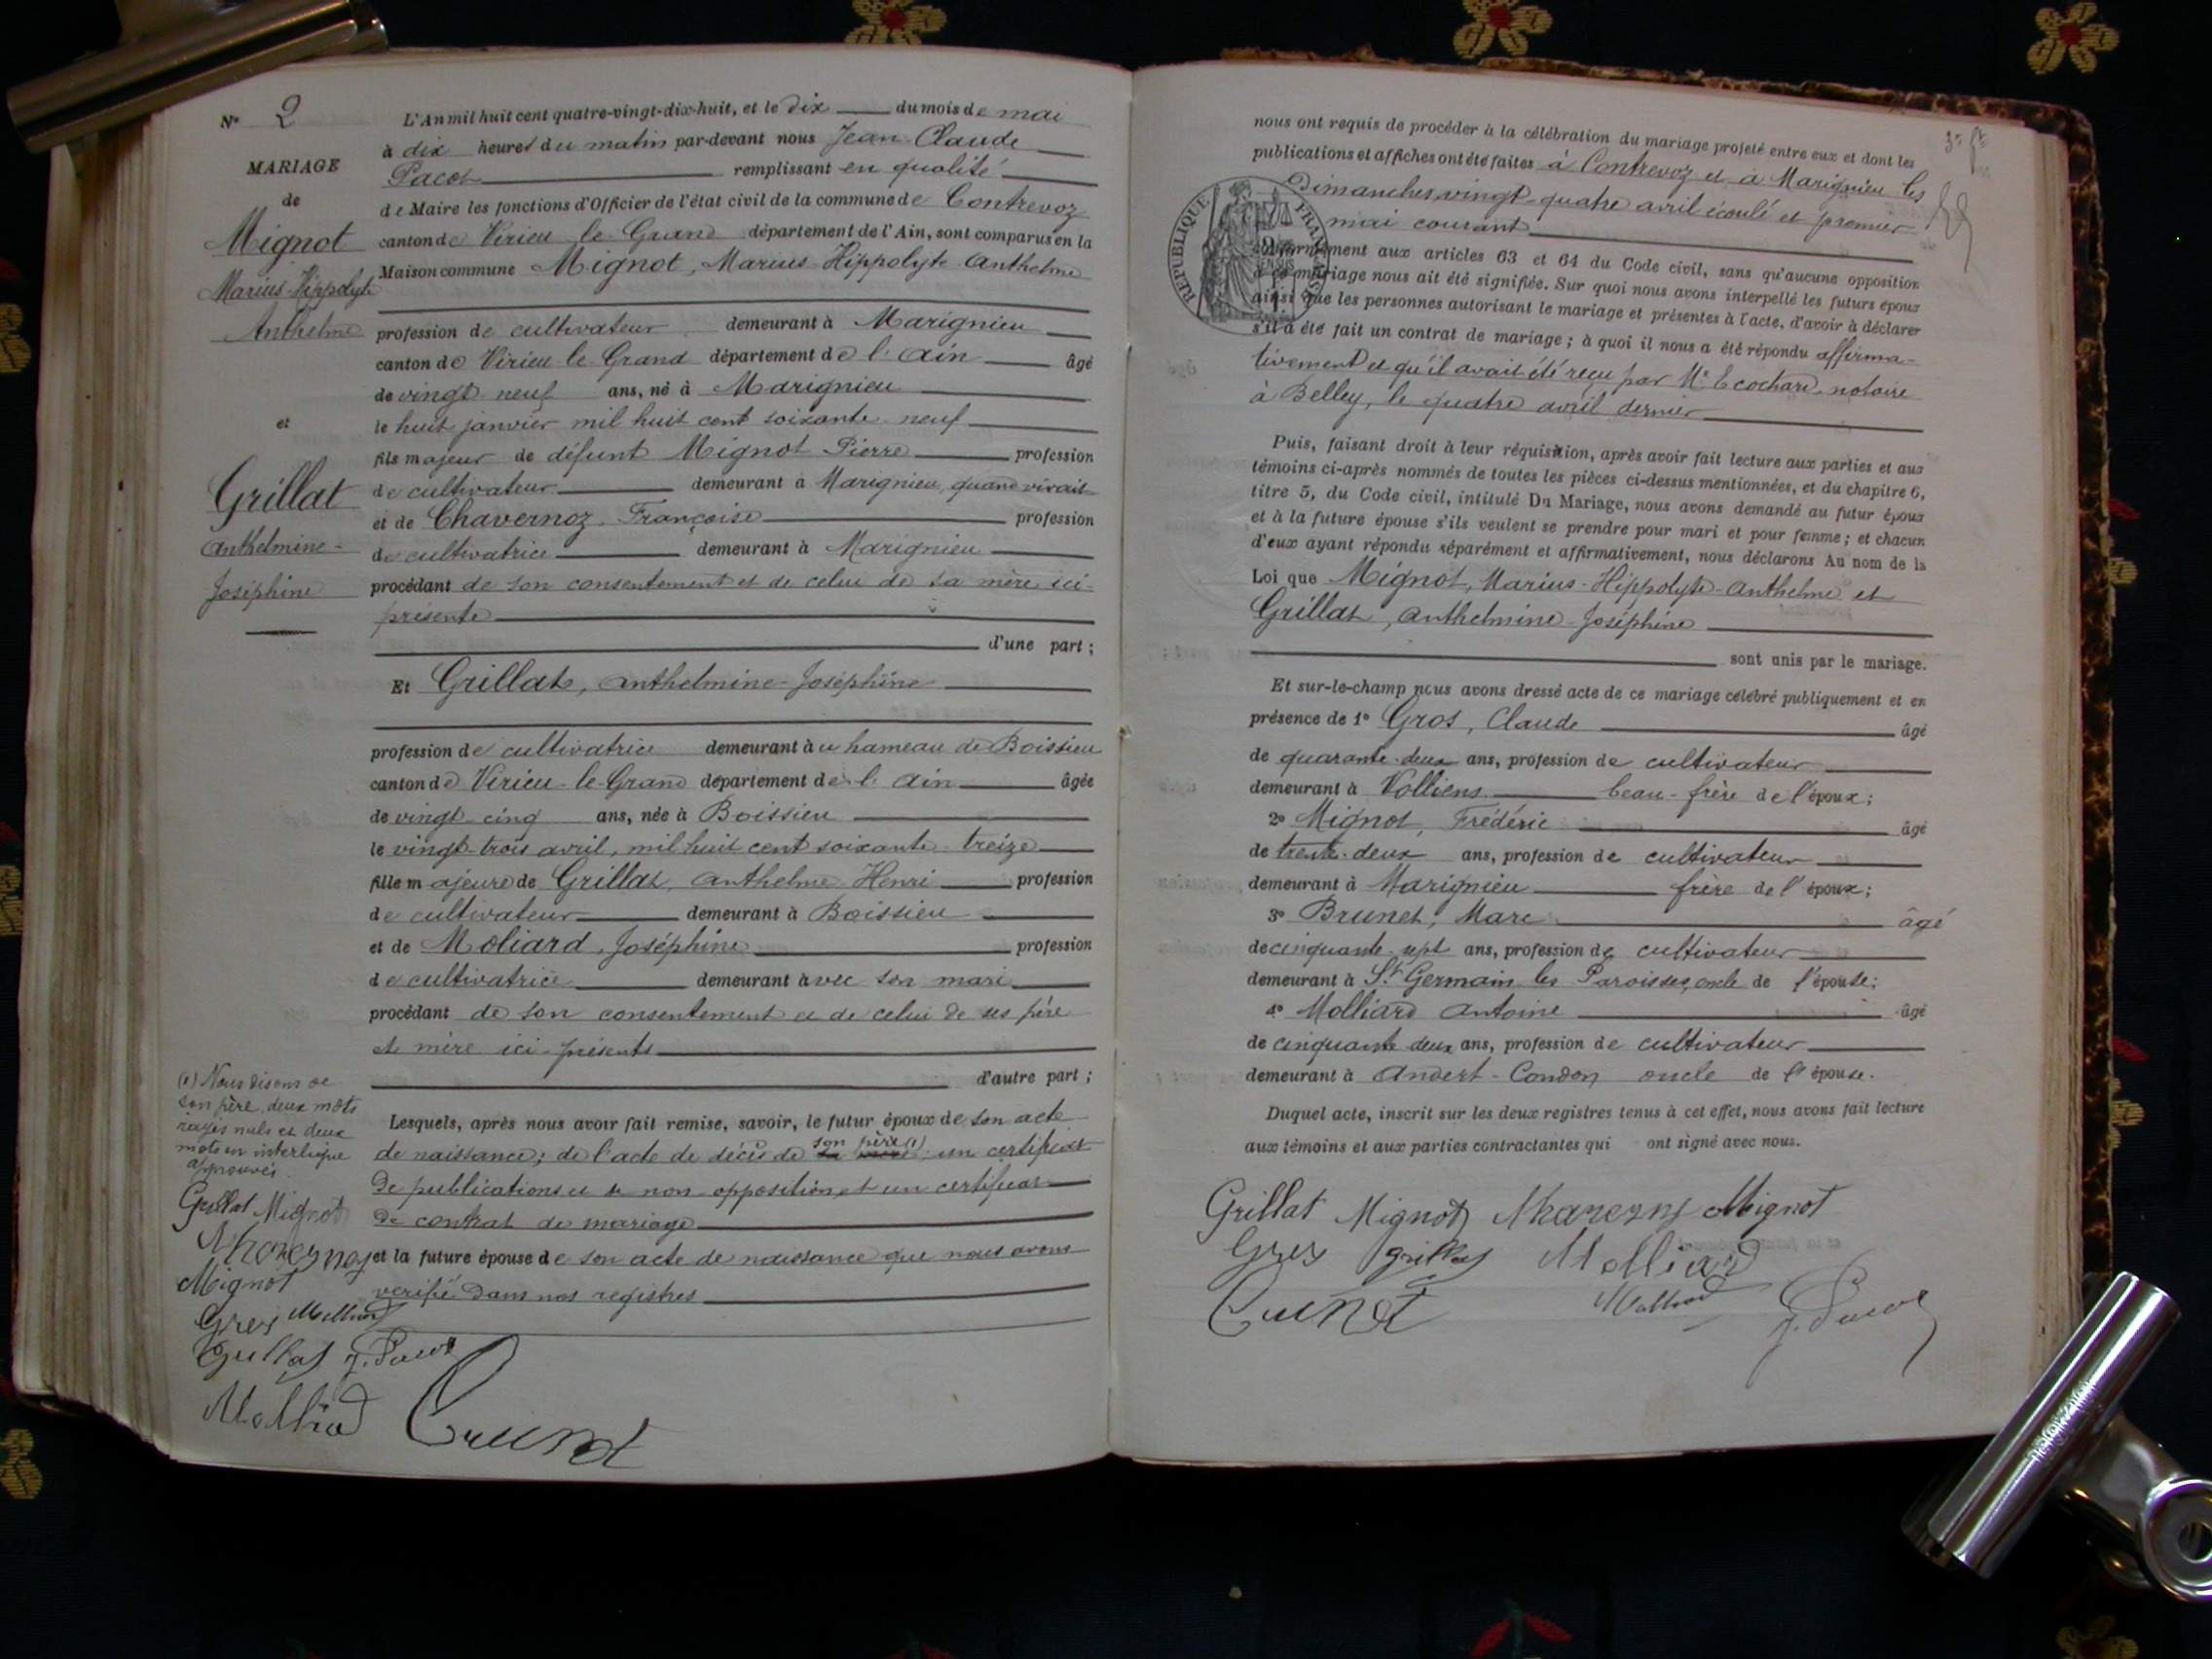 N° 2
MARIAGE
de
Mignot
Marius-Hippolyte
Anthelme
et
Grillat
Anthelmine-
Joséphine
L'An mil huit cent quatre-vingt-dix-huit, et le dix du mois de mai
à dix heures du matin par-devant nous Jean-Claude
Pacot remplissant en qualité
de Maire les fonctions d'Officier de l'état civil de la commune de Contrevoz
canton de Virieu-le-Grand département de l'Ain, sont comparus en la
Maison commune Mignot, Marius-Hippolyte-Anthelme
profession de cultivateur demeurant à Marignieu
canton de Virieu-le-Grand département de l'Ain âgé
de vingt-neuf ans, né à Marignieu
le huit janvier mil huit cent soixante-neuf
fils majeur de défunt Mignot Pierre profession
de cultivateur demeurant à Marignieu, quand vivait
et de Chavernoz, Françoise profession
de cultivatrice demeurant à Marignieu
procédant de son consentement et de celui de sa mère ici-
présente
d'une part ;
Et Grillat, Anthelmine-Joséphine
profession de cultivatrice demeurant au hameau de Boissieu
canton de Virieu-le-Grand département de l'Ain âgée
de vingt-cinq ans, née à Boissieu
le vingt-trois avril, mil huit cent soixante-treize
fille majeure de Grillat, Anthelme Henri profession
de cultivateur demeurant à Boissieu
et de Moliard, Joséphine profession
de cultivatrice demeurant avec son mari
procédant de son consentement et de celui de ses père
et mère ici-présents
d'autre part ;
Lesquels, après nous avoir fait remise, savoir, le futur époux de son acte
de naissance ; de l'acte de décès de son père (1) un certificat
de publications et de non opposition, et un certificat
de contrat de mariage
et la future épouse de son acte de naissance que nous avons
vérifié dans nos registres
(1) Nous disons de
son père, deux mots
rayés nuls et deux
mots en interligne
approuvés.
Grillat Mignot
Mignot
Gros Molliard
Grillat J. Pacot
Molliard Brunet
nous ont requis de procéder à la célébration du mariage projeté entre eux et dont les
publications et affiches ont été faites à Contrevoz et à Marignieu les
Dimanches vingt-quatre avril écoulé et premier
mai courant
RÉPUBLIQUE FRANÇAISE
conformément aux articles 63 et 64 du Code civil, sans qu'aucune opposition
à ce mariage nous ait été signifiée. Sur quoi nous avons interpellé les futurs époux
ainsi que les personnes autorisant le mariage et présentes à l'acte, d'avoir à déclarer
s'il a été fait un contrat de mariage ; à quoi il nous a été répondu affirma-
tivement et qu'il avait été reçu par Me Ecochard, notaire
à Belley, le quatre avril dernier
Puis, faisant droit à leur réquisition, après avoir fait lecture aux parties et aux
témoins ci-après nommés de toutes les pièces ci-dessus mentionnées, et du chapitre 6,
titre 5, du Code civil, intitulé Du Mariage, nous avons demandé au futur époux
et à la future épouse s'ils veulent se prendre pour mari et pour femme ; et chacun
d'eux ayant répondu séparément et affirmativement, nous déclarons Au nom de la
Loi que Mignot, Marius-Hippolyte-Anthelme et
Grillat, Anthelmine-Joséphine
sont unis par le mariage.
Et sur-le-champ nous avons dressé acte de ce mariage célébré publiquement et en
présence de 1° Gros, Claude âgé
de quarante-deux ans, profession de cultivateur
demeurant à Volliens beau-frère de l'époux ;
2° Mignot, Frédéric âgé
de trente-deux ans, profession de cultivateur
demeurant à Marignieu frère de l'époux ;
3° Brunet, Marc âgé
de cinquante-sept ans, profession de cultivateur
demeurant à St Germain les Paroisses, oncle de l'épouse ;
4° Molliard Antoine âgé
de cinquante-deux ans, profession de cultivateur
demeurant à Andert-Condon oncle de l'épouse.
Duquel acte, inscrit sur les deux registres tenus à cet effet, nous avons fait lecture
aux témoins et aux parties contractantes qui ont signé avec nous.
Grillat Mignot Mignot
Gros Grillat Molliard
Brunet Molliard J. Pacot